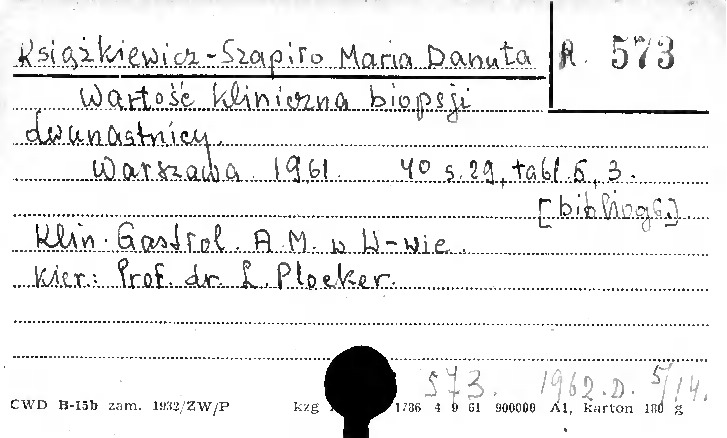 Książkiewicz-Szapiro Maria Danuta A. 573
Wartość kliniczna biopsji
dwunastnicy.
Warszawa 1961. 40 s. 29, tabl. 5, 3.
[bibliogr.]
Klin. Gastrol. A.M. w W-wie.
Kier.: Prof. dr. L. Plocker.
573. 1962.D. 5/14.
CWD B-15b zam. 1932/ZW/P kzg 1786 4 9 61 900000 A1, karton 180 g